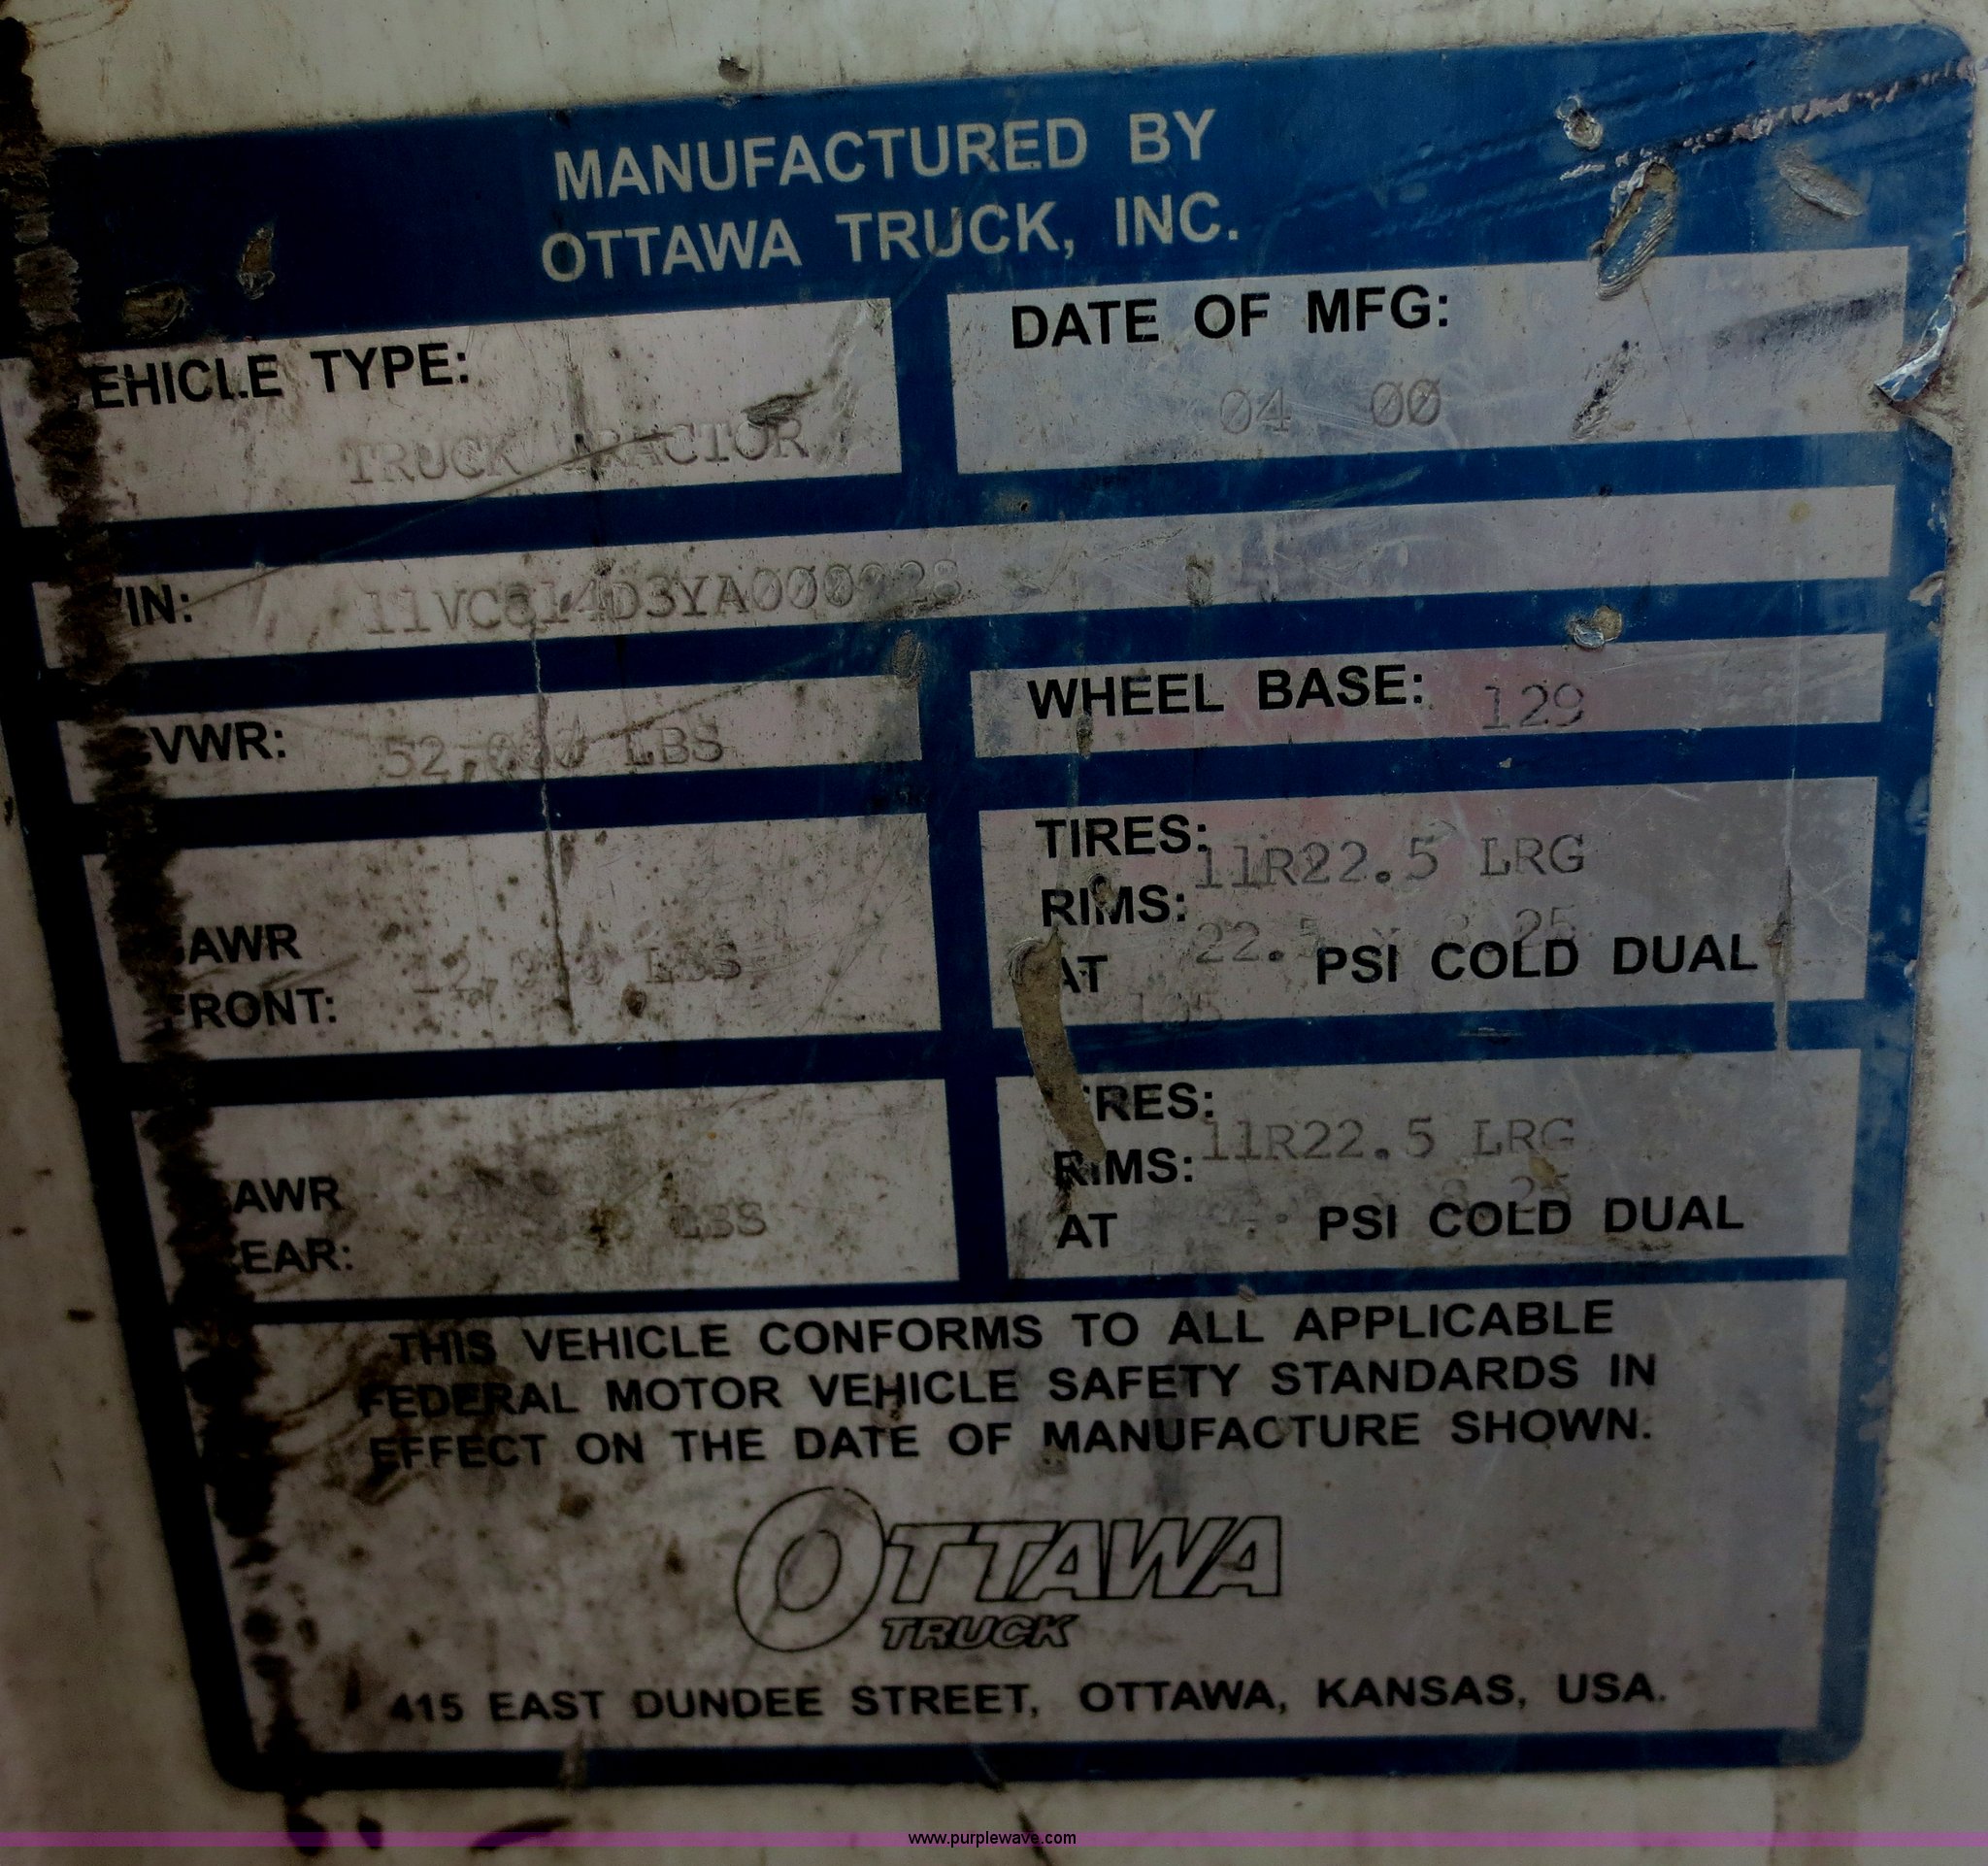 MANUFACTURED BY
OTTAWA TRUCK, INC.
EHICLE TYPE:
TRUCK TRACTOR
DATE OF MFG:
04 00
VIN:
WHEEL BASE: 129
GVWR: 52,000 LBS
TIRES: 11R22.5 LRG
RIMS:
AT PSI COLD DUAL
AWR
FRONT: LBS
TIRES: 11R22.5 LRG
RIMS:
AT PSI COLD DUAL
AWR
EAR: LBS
THIS VEHICLE CONFORMS TO ALL APPLICABLE
FEDERAL MOTOR VEHICLE SAFETY STANDARDS IN
EFFECT ON THE DATE OF MANUFACTURE SHOWN.
OTTAWA
TRUCK
415 EAST DUNDEE STREET, OTTAWA, KANSAS, USA.
www.purplewave.com